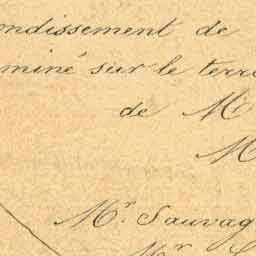 ondissement de
miné sur le terr
de M
M
Mr. Sauvag
Mr